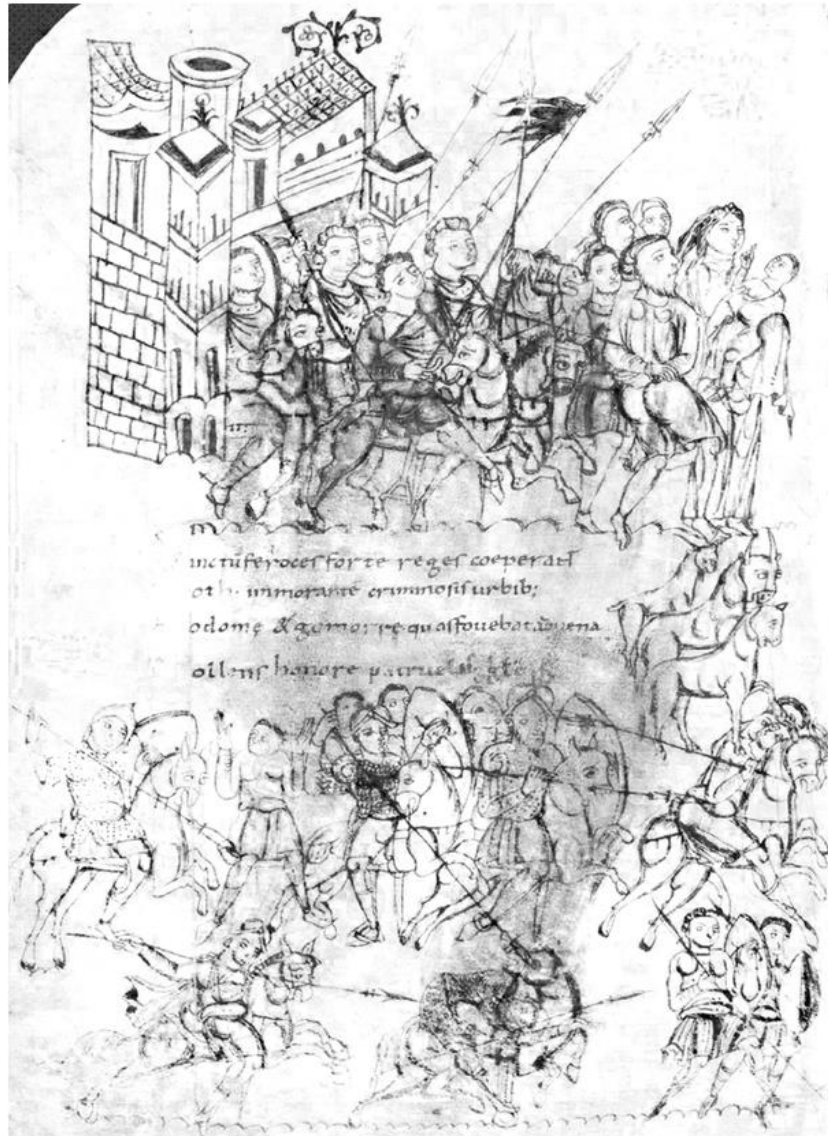 inctū feroces forte reges coeperant
oth inmorantē criminosis urbib;
odomę & gomorrę quas fovebat advena
ollens honore patruelis